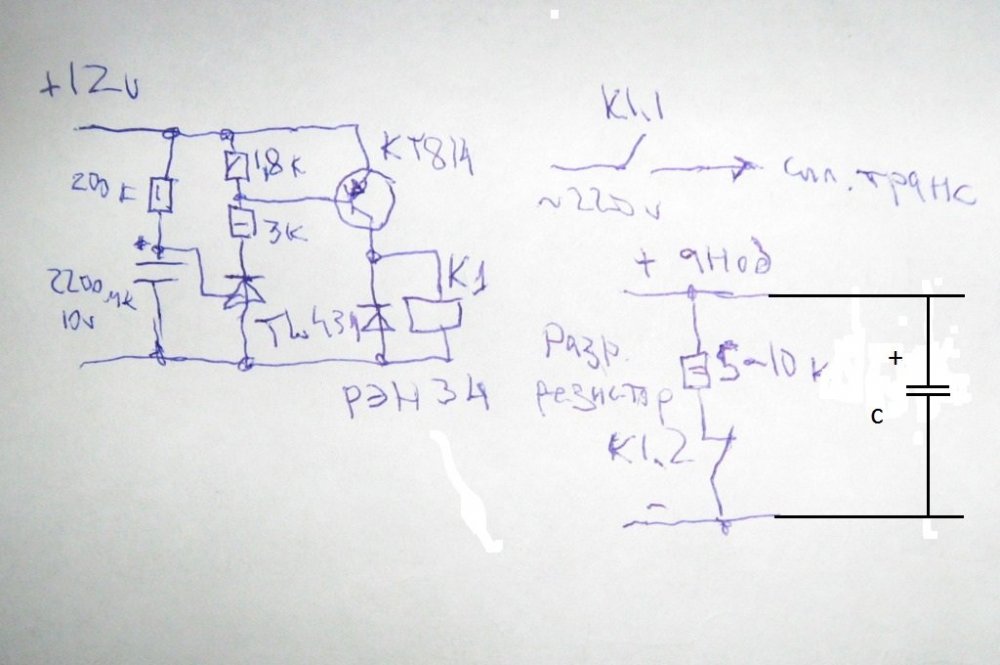 +12v
200к
1,8к
КТ814
3к
+
2200мк
10v
TL431
К1
РЭН34
К1.1
~220v
сил. транс
+ анод
Разр.
резистор
5-10к
К1.2
-
+
c